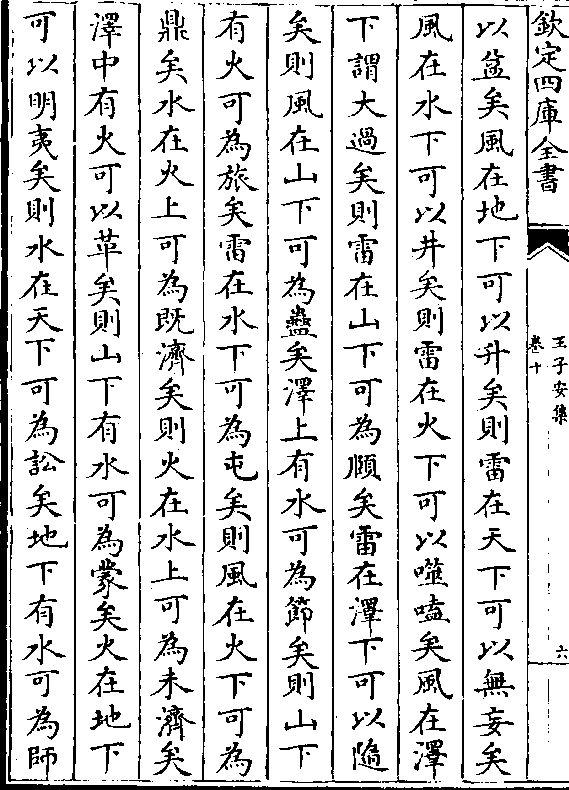 欽定四庫全書
王子安集
卷十
六
以盆矣風在地下可以升矣則雷在天下可以無妄矣
風在水下可以井矣則雷在火下可以噬嗑矣風在澤
下謂大過矣則雷在山下可為頤矣雷在澤下可以隨
矣則風在山下可為蠱矣澤上有水可為節矣則山下
有火可為旅矣雷在水下可為屯矣則風在火下可為
鼎矣水在火上可為既濟矣則火在水上可為未濟矣
澤中有火可以革矣則山下有水可為蒙矣火在地下
可以明夷矣則水在天下可為訟矣地下有水可為師